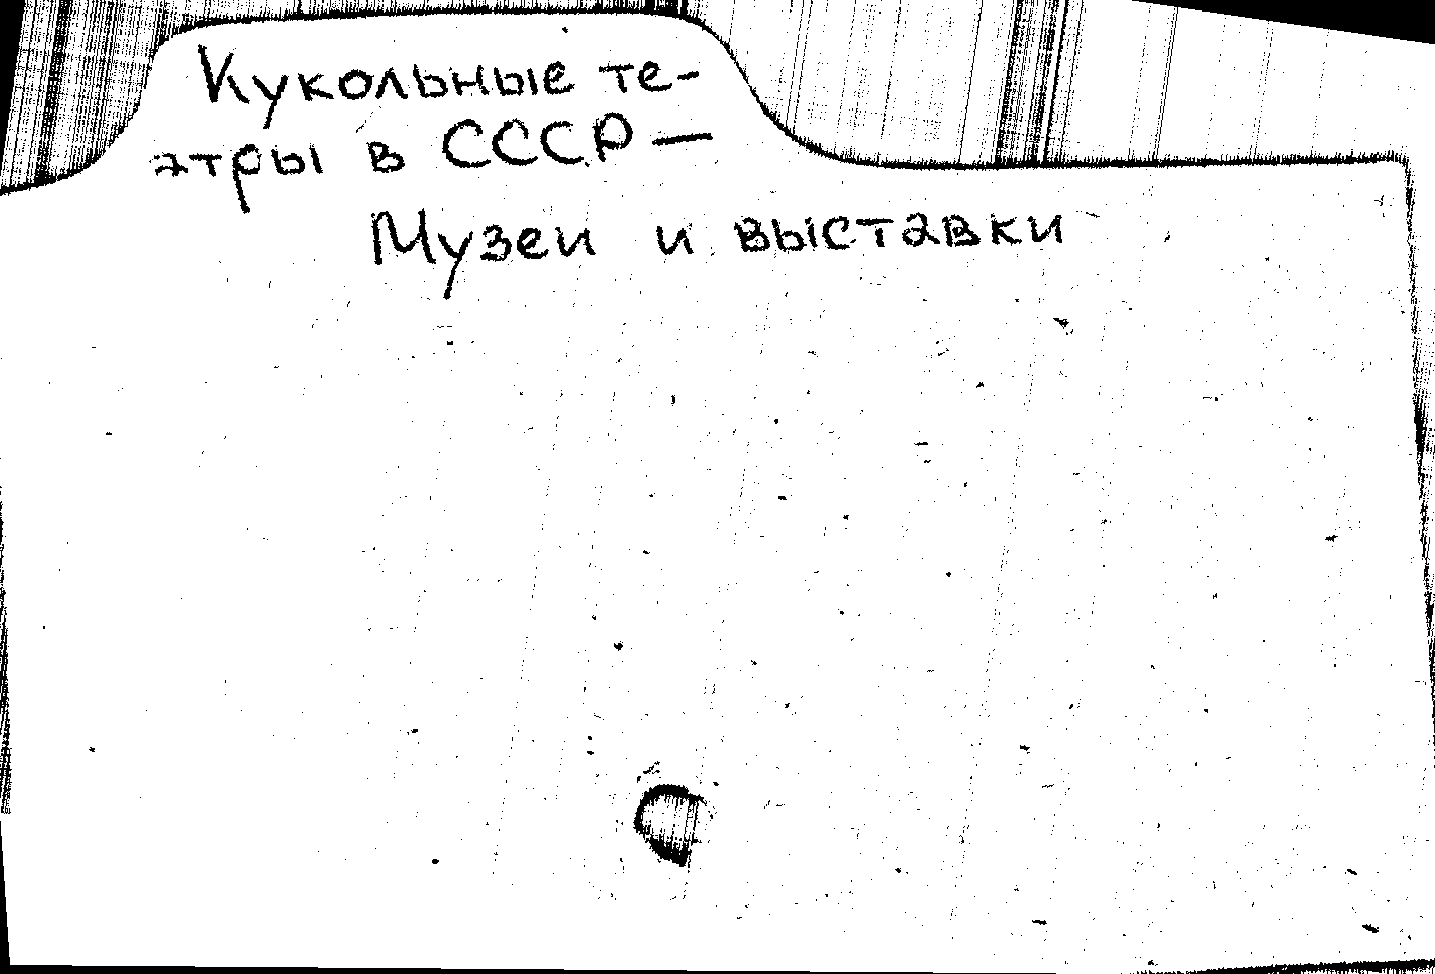 Кукольные те-
атры в СССР —
Музеи и выставки